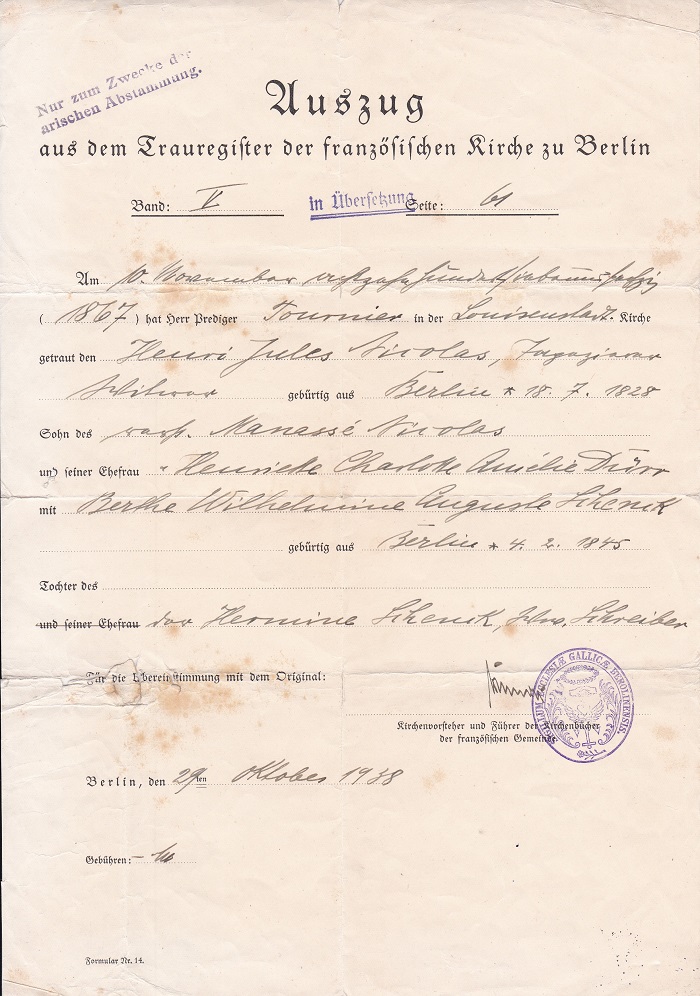 Nur zum Zwecke der
arischen Abstammung.
Auszug
aus dem Trauregister der französischen Kirche zu Berlin
Band: V in Übersetzung Seite: 61
Am 10. November achtzehnhundertsiebenundsechzig
(1867) hat Herr Prediger Tournier in der Louisenstadt-Kirche
getraut den Henri Jules Nicolas,
Witwer gebürtig aus Berlin * 18. 7. 1828
Sohn des verst. Manassé Nicolas
und seiner Ehefrau Henriette Charlotte Amélie Dürr
mit Berthe Wilhelmine Auguste Schenck
gebürtig aus Berlin * 4. 2. 1845
Tochter des
und seiner Ehefrau der Hermine Schenck, Schreiber
Für die Übereinstimmung mit dem Original:
SIGILLUM ECCLESIÆ GALLICÆ BEROLINENSIS.
Kirchenvorsteher und Führer der Kirchenbücher
der französischen Gemeinde.
Berlin, den 29ten Oktober 1938
Gebühren:
Formular Nr. 14.